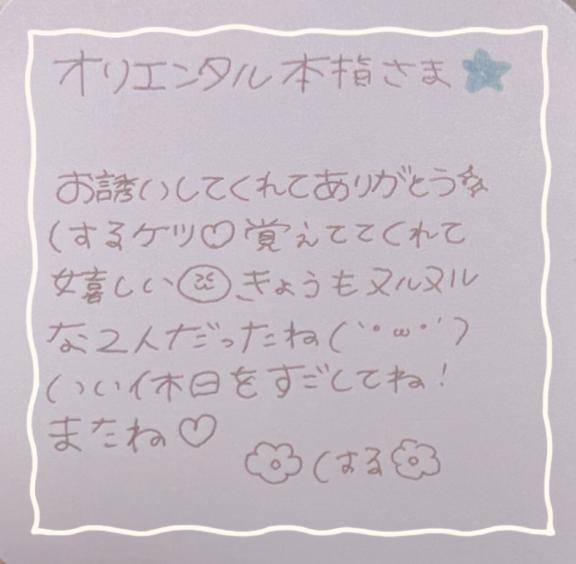 オリエンタル 本指さま
お誘いしてくれてありがとう
はするケツ♡覚えててくれて
嬉しい きょうもヌルヌル
な2人だったね(´・ω・｀)
いい休日をすごしてね!
またね♡
はする